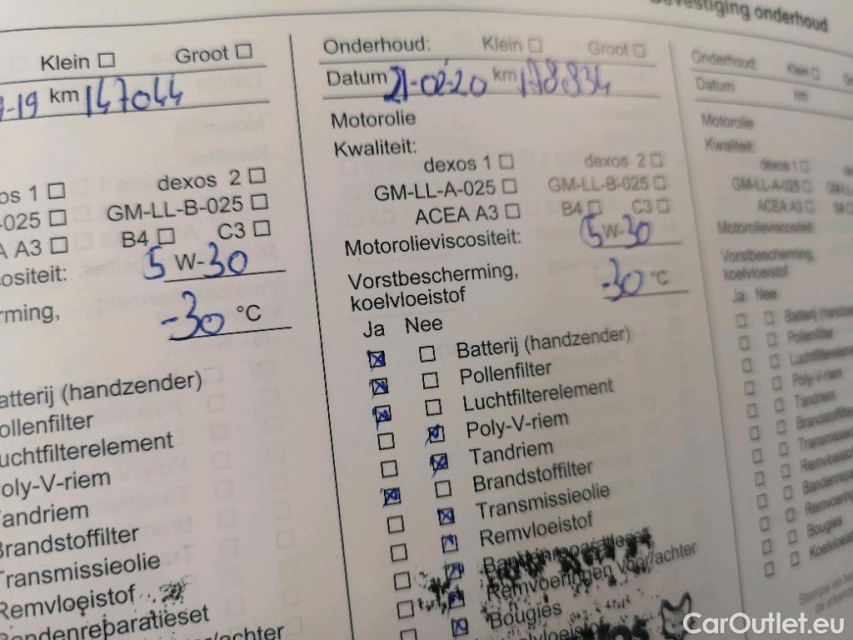 Bevestiging onderhoud
Klein Groot
9-19 km 147044
os 1 dexos 2
-025 GM-LL-B-025
A A3 B4 C3
ositeit: 5 W-30
rming,
-30 °C
atterij (handzender)
ollenfilter
uchtfilterelement
oly-V-riem
andriem
Brandstoffilter
Transmissieolie
Remvloeistof
Bandenreparatieset
/achter
Onderhoud: Klein Groot
Datum 21-02-20 km 178.934
Motorolie
Kwaliteit:
dexos 1 dexos 2
GM-LL-A-025 GM-LL-B-025
ACEA A3 B4 C3
Motorolieviscositeit: 5 W-30
Vorstbescherming,
koelvloeistof -30 °C
Ja Nee
Batterij (handzender)
Pollenfilter
Luchtfilterelement
Poly-V-riem
Tandriem
Brandstoffilter
Transmissieolie
Remvloeistof
Bandenreparatieset
Remvoeringen voor/achter
Bougies
Onderhoud: Klein
Datum km
Motorolie
Kwaliteit:
dexos 1
GM-LL-A-025 GM-LL
ACEA A3 B4
Motorolieviscositeit:
Vorstbescherming,
koelvloeistof
Ja Nee
Batterij (handz
Pollenfilter
Luchtfilterele
Poly-V-riem
Tandriem
Brandstoffilt
Transmissie
Remvloeistof
Bandenrepa
Remvoering
Bougies
Koelvloeist
CarOutlet.eu